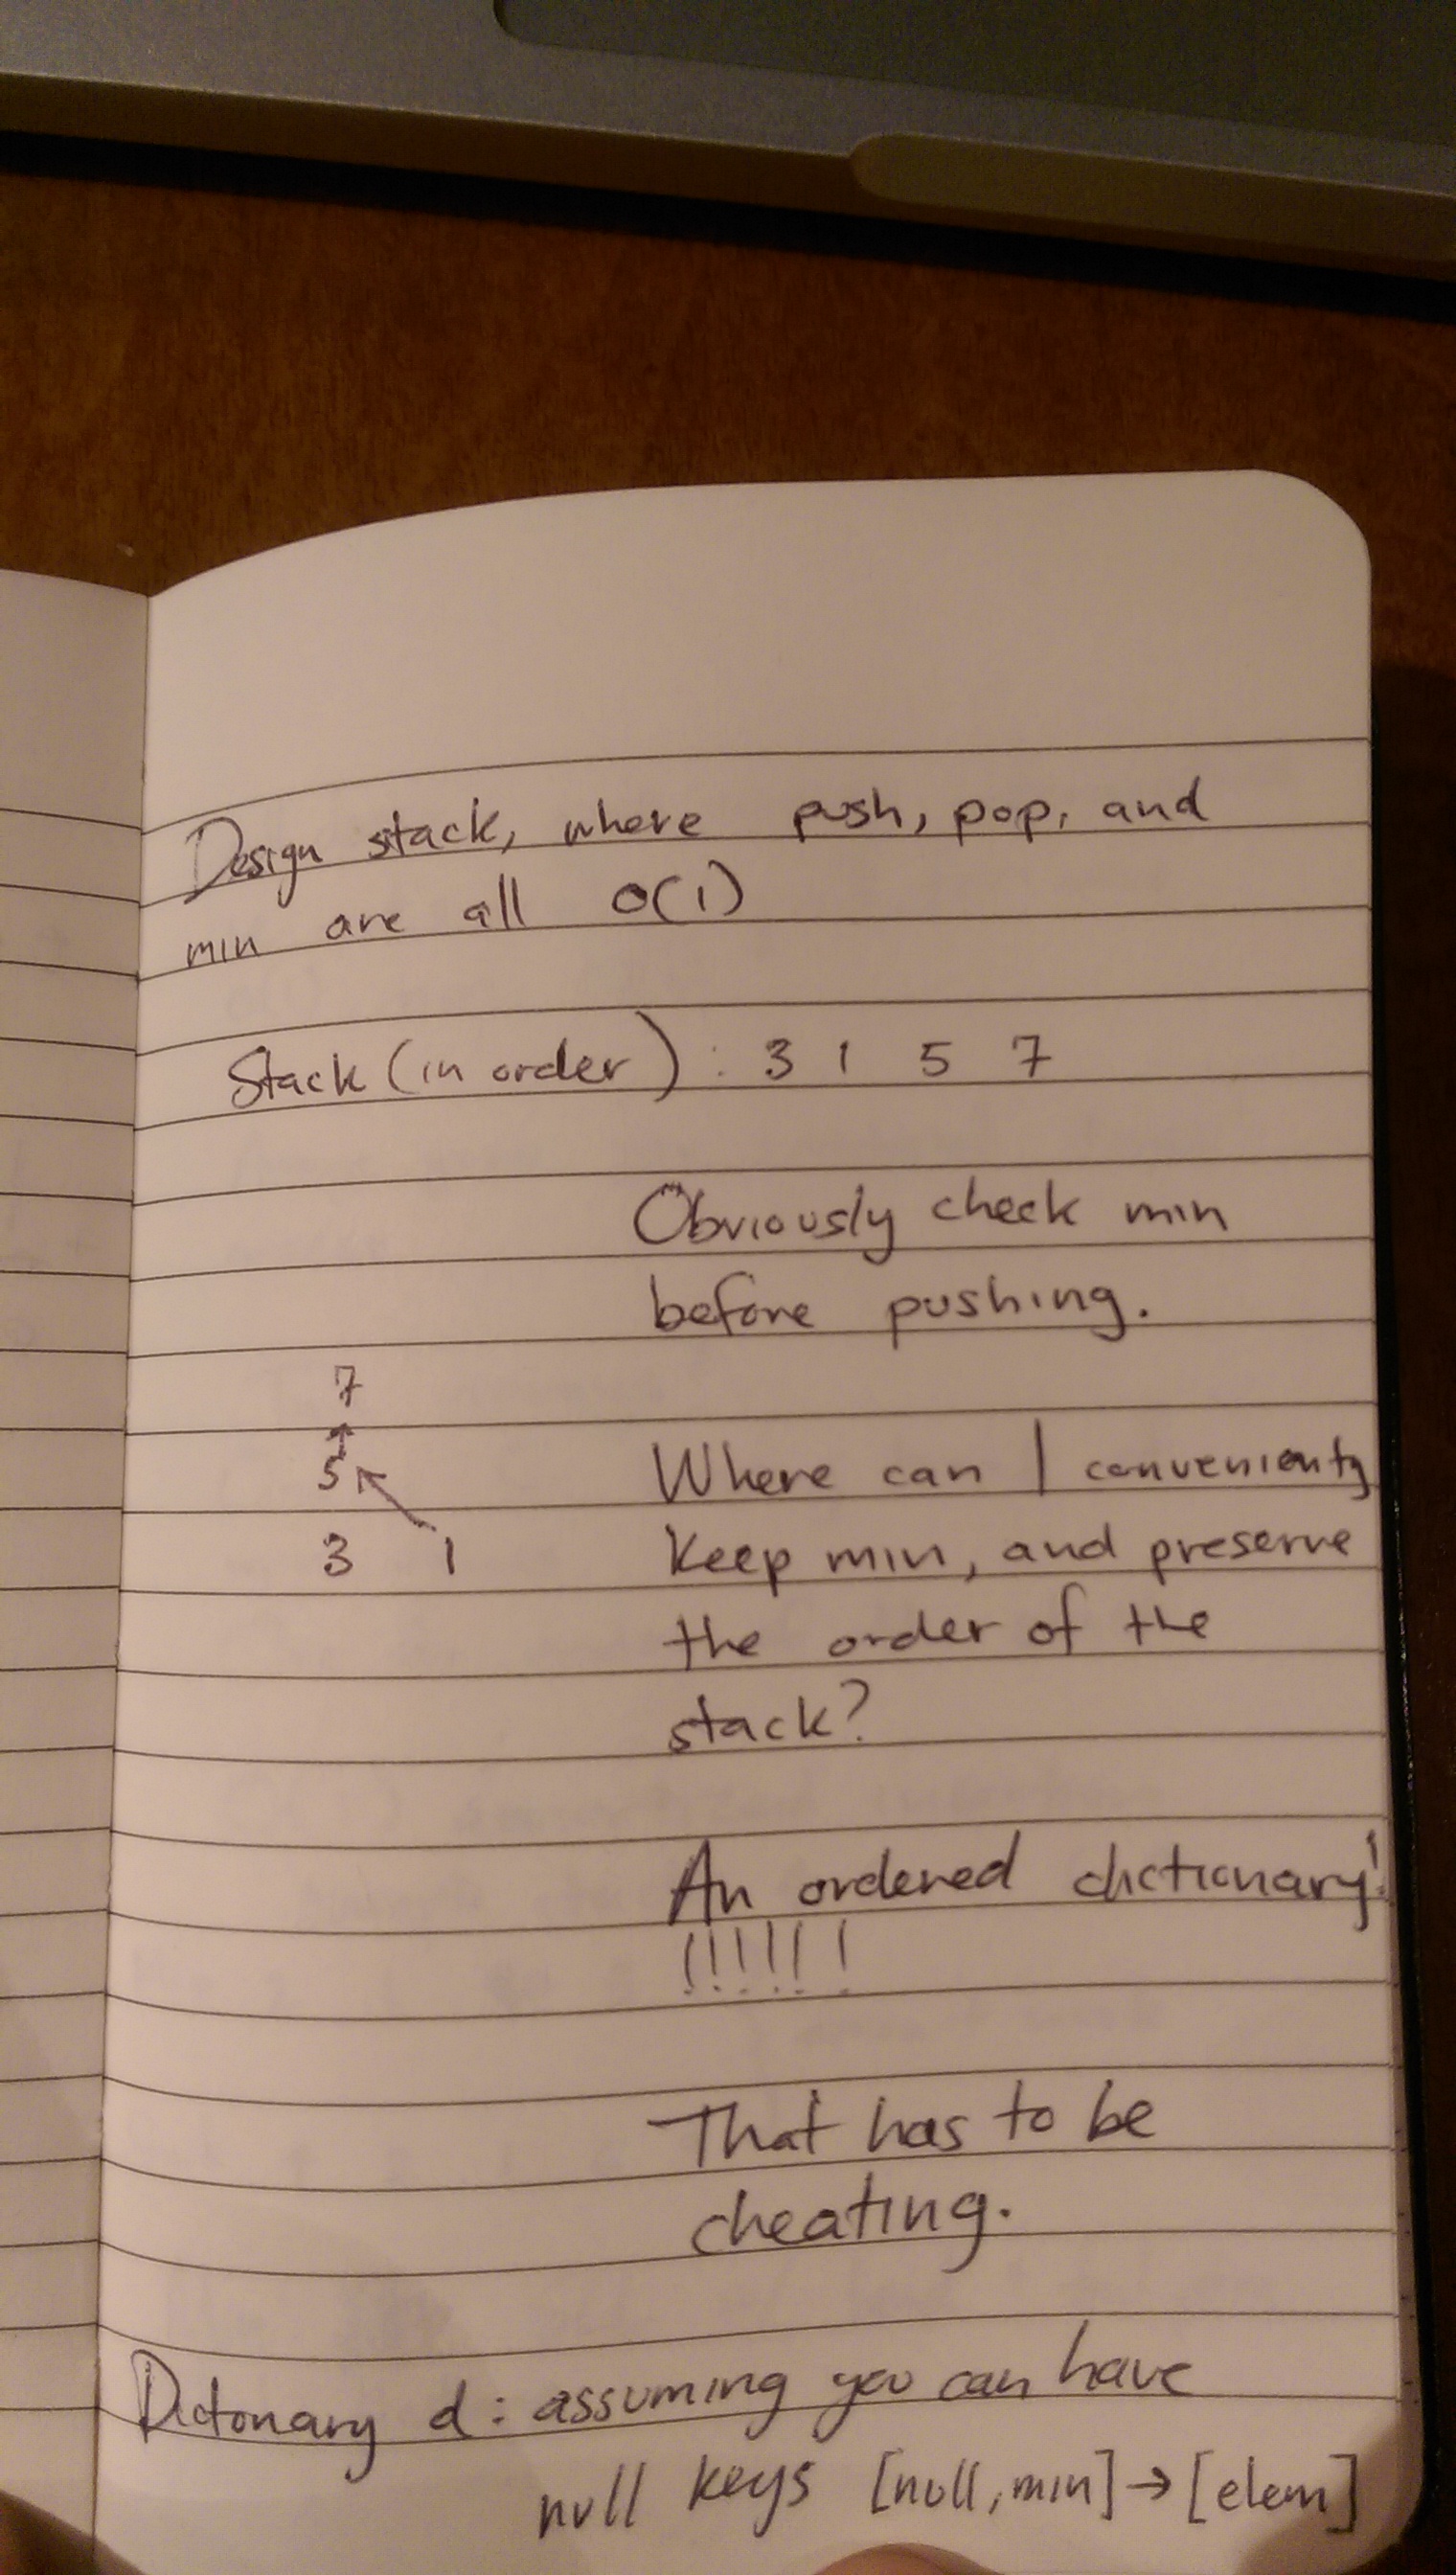 Design stack, where push, pop, and
min are all O(1)
Stack (in order) : 3 1 5 7
Obviously check min
before pushing.
7
5
Where can I conveniently
3 1
keep min, and preserve
the order of the
stack?
An ordered dictionary!
!!!!!!
That has to be
cheating.
Dictonary d : assuming you can have
null keys [null, min] → [elem]